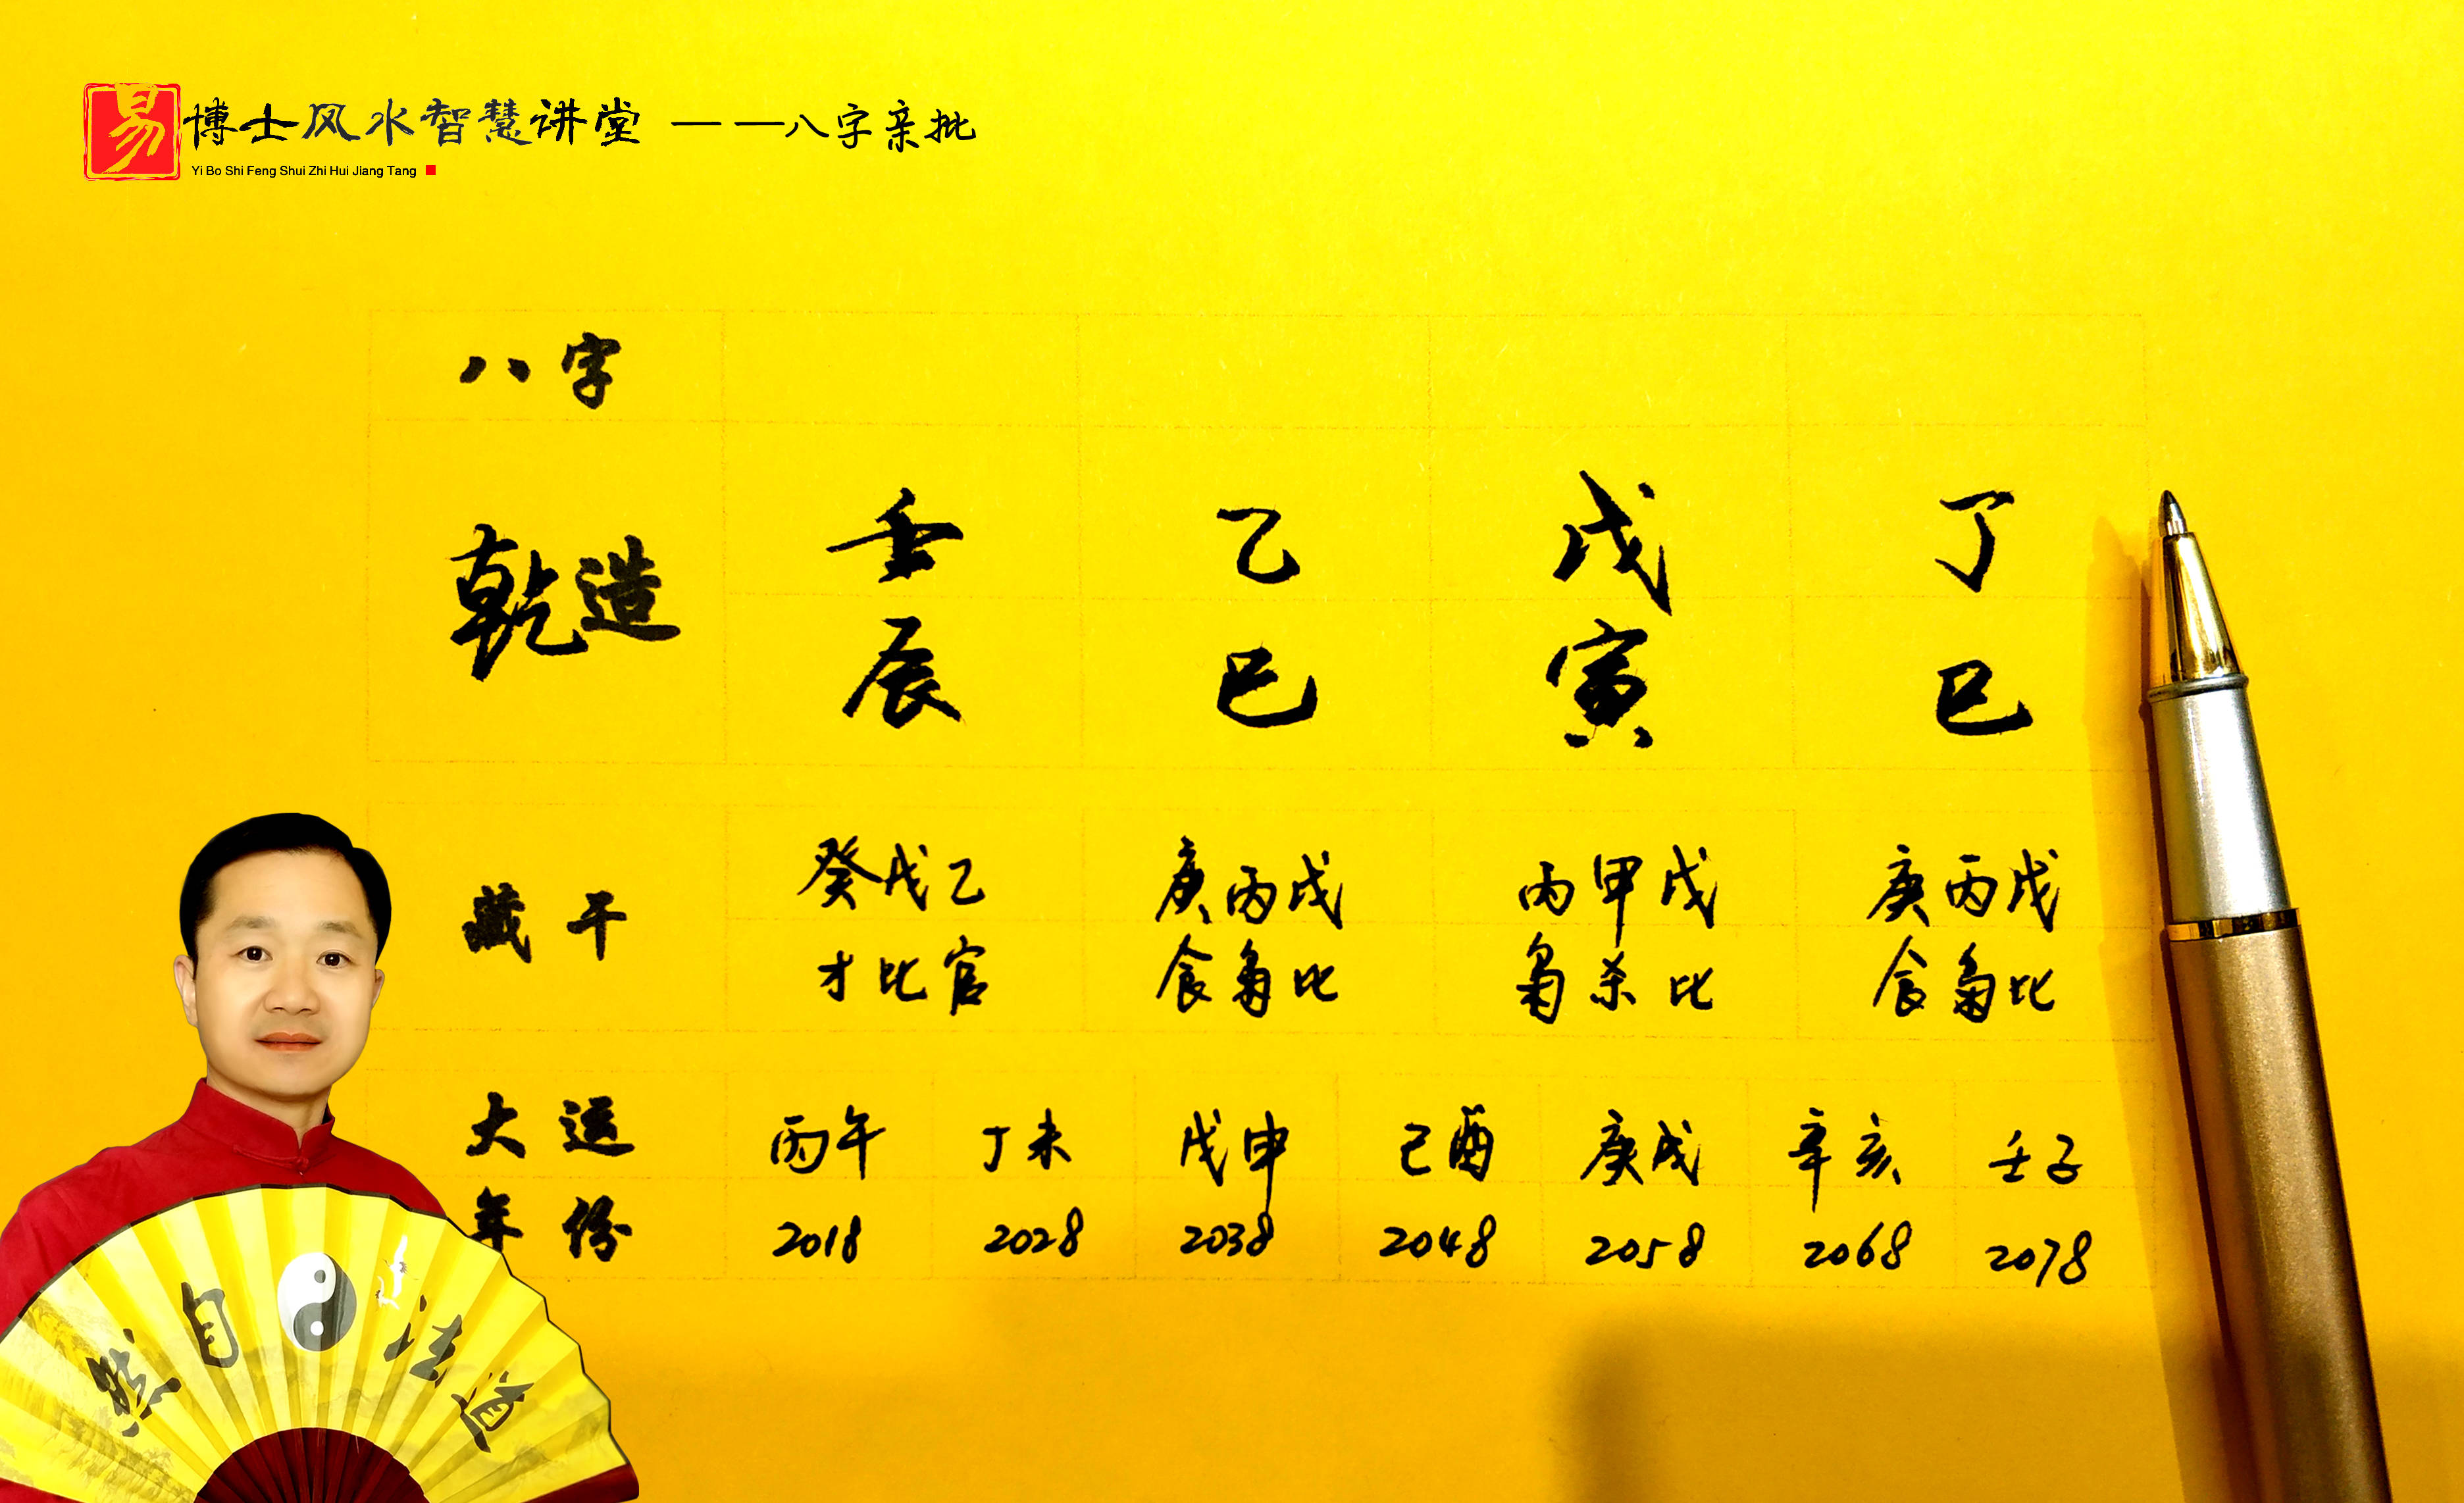 易博士风水智慧讲堂 ——八字亲批
Yi Bo Shi Feng Shui Zhi Hui Jiang Tang
八字
乾造
壬 乙 戊 丁
辰 巳 寅 巳
藏干
癸戊乙 庚丙戊 丙甲戊 庚丙戊
才比官 食枭比 枭杀比 食枭比
大运 丙午 丁未 戊申 己酉 庚戌 辛亥 壬子
年份 2018 2028 2038 2048 2058 2068 2078
然自法道